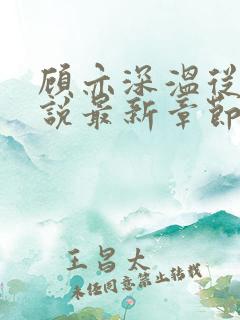 顾亦深温従
說最新章節
王昌太
未经同意禁止转载